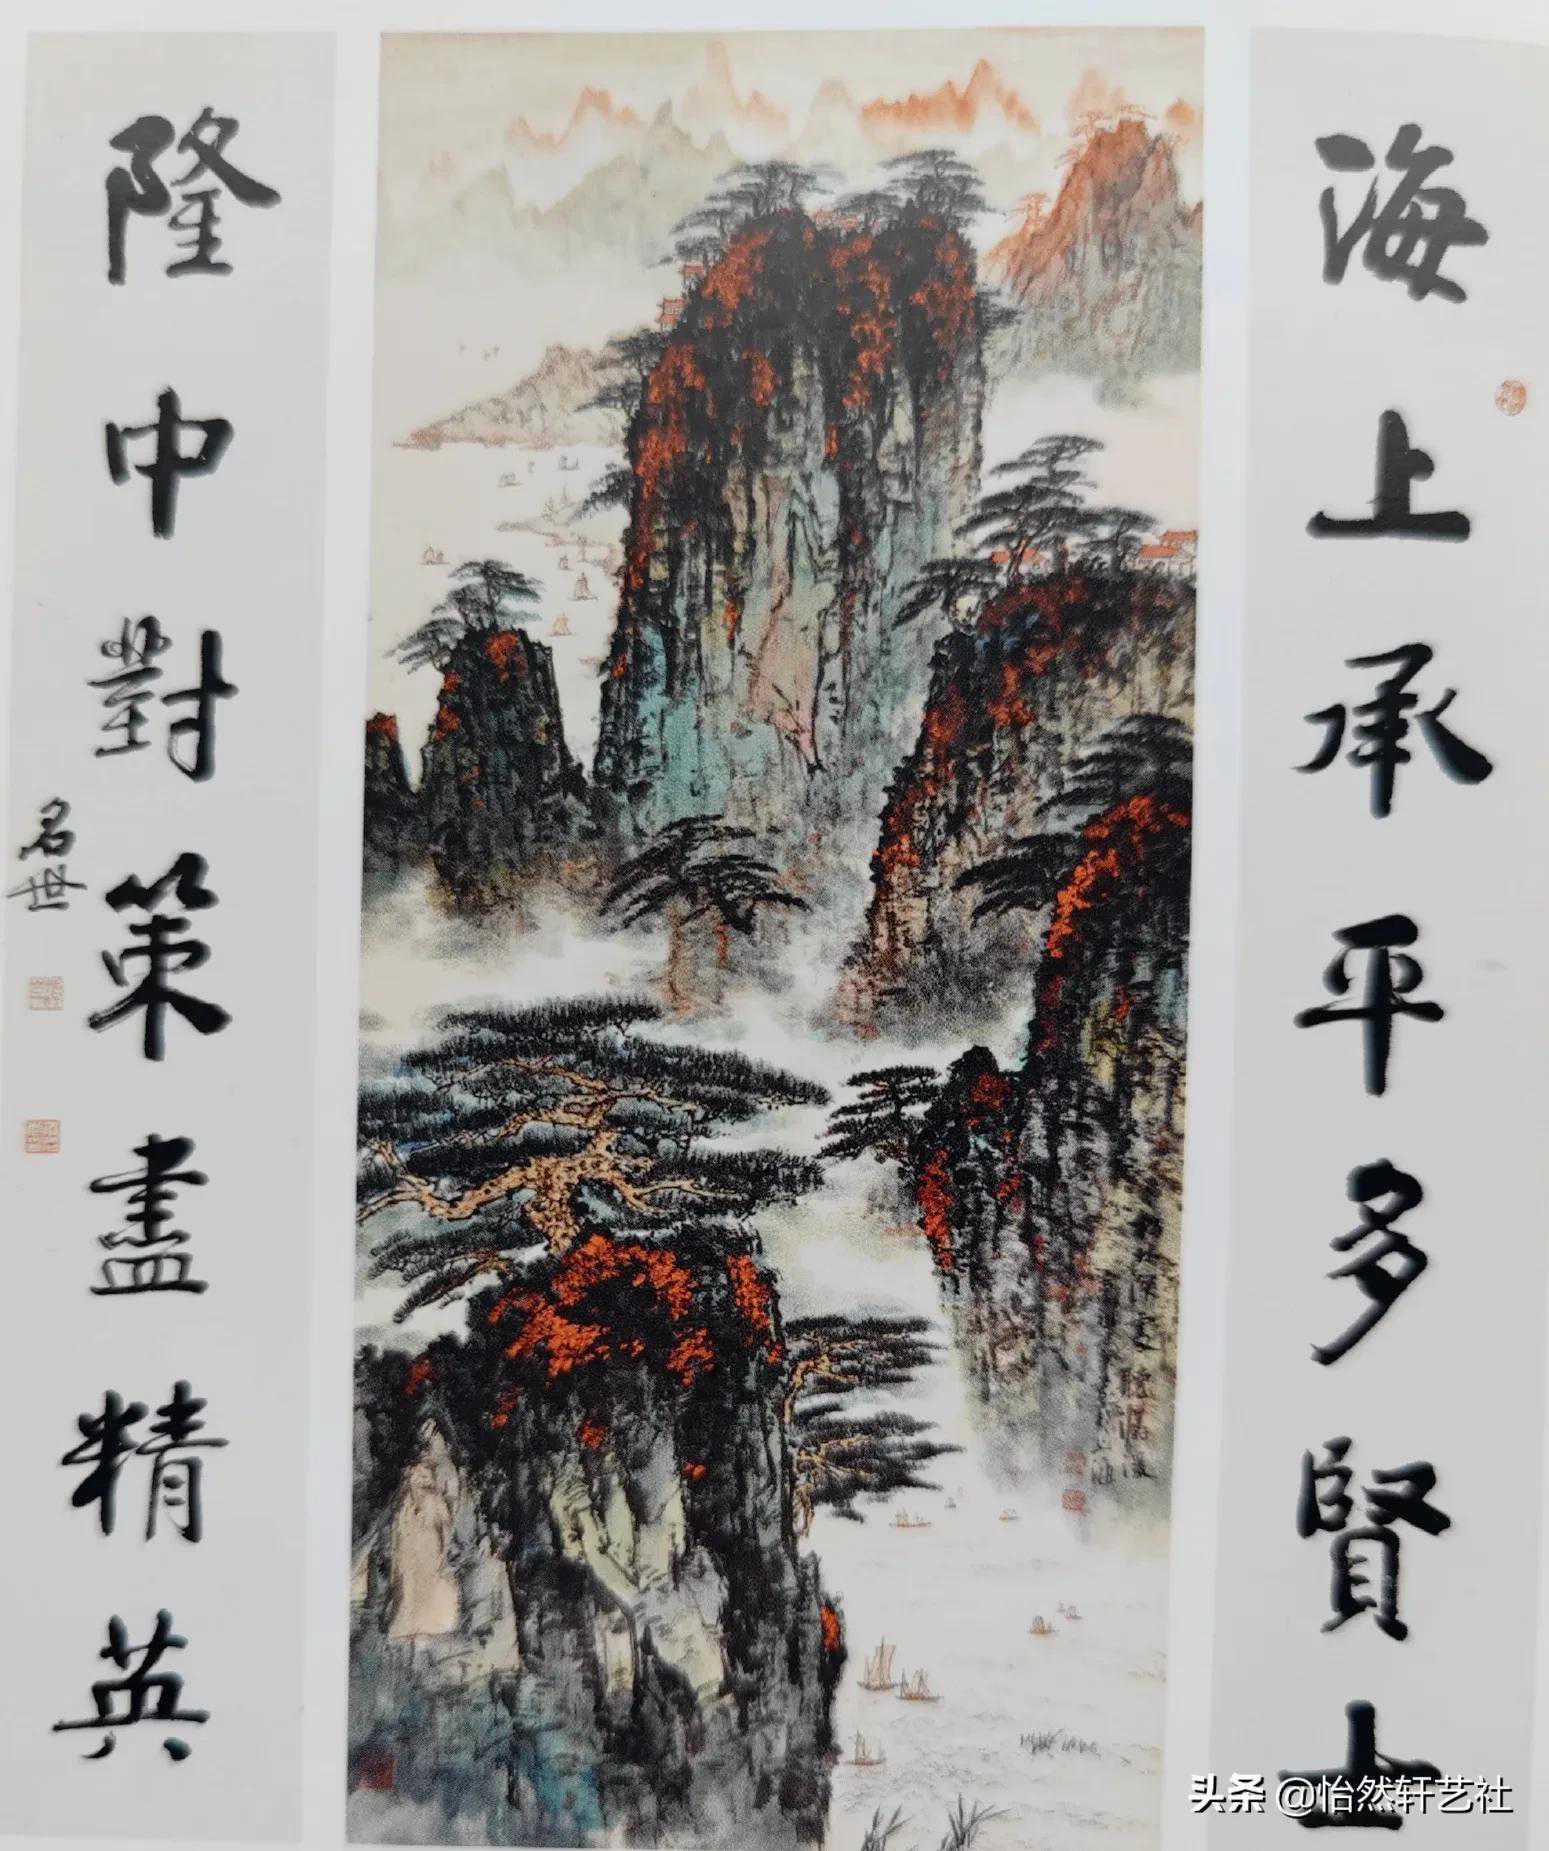 海上承平多賢士
隆中對策盡精英
名世
头条 @怡然轩艺社